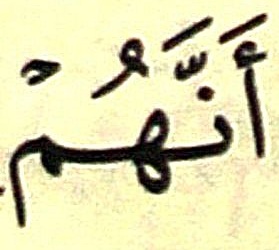 أَنَّهُمْ